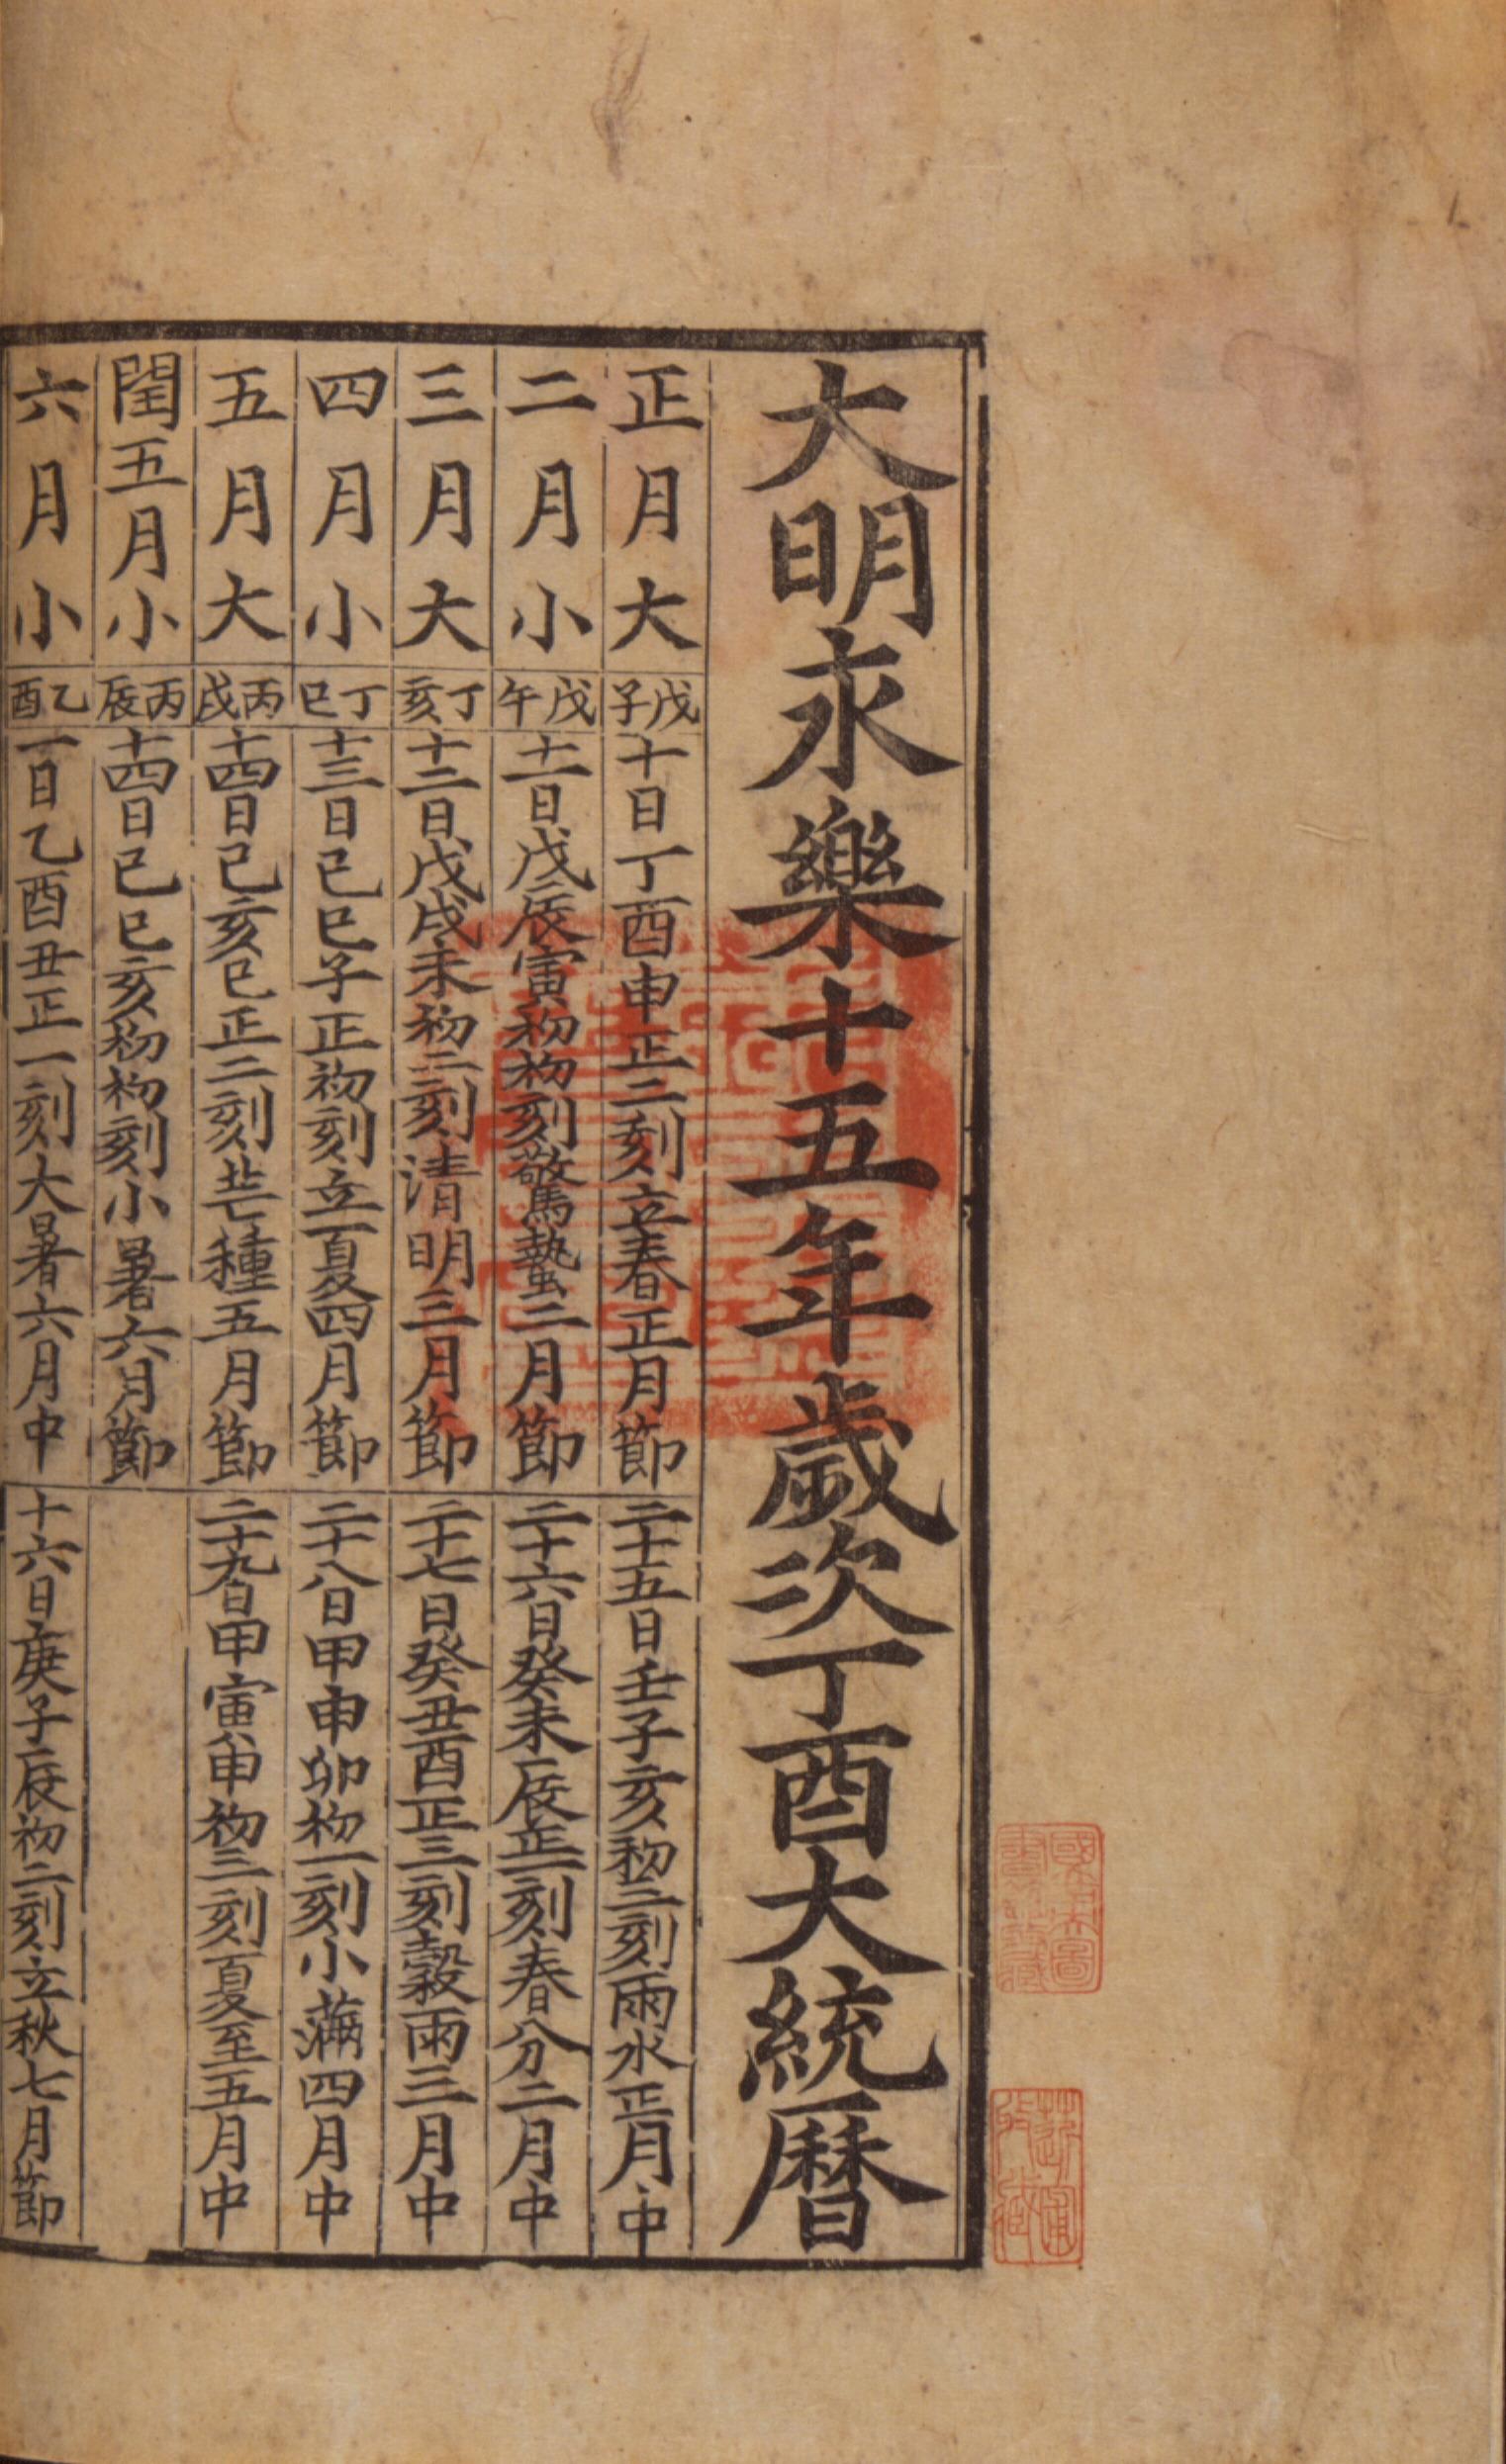 大明永樂十五年歲次丁酉大統曆
正月大 戊子 十日丁酉申正二刻立春正月節 二十五日壬子亥初三刻雨水正月中
二月小 戊午 十一日戊辰寅初初刻驚蟄二月節 二十六日癸未辰正一刻春分二月中
三月大 丁亥 十二日戊戌未初二刻清明三月節 二十七日癸丑酉正三刻穀雨三月中
四月小 丁巳 十三日己巳子正初刻立夏四月節 二十八日甲申卯初一刻小滿四月中
五月大 丙戌 十四日己亥巳正二刻芒種五月節 二十九日甲寅申初三刻夏至五月中
閏五月小 丙辰 十四日己巳亥初初刻小暑六月節
六月小 乙酉 一日乙酉丑正一刻大暑六月中 十六日庚子辰初二刻立秋七月節